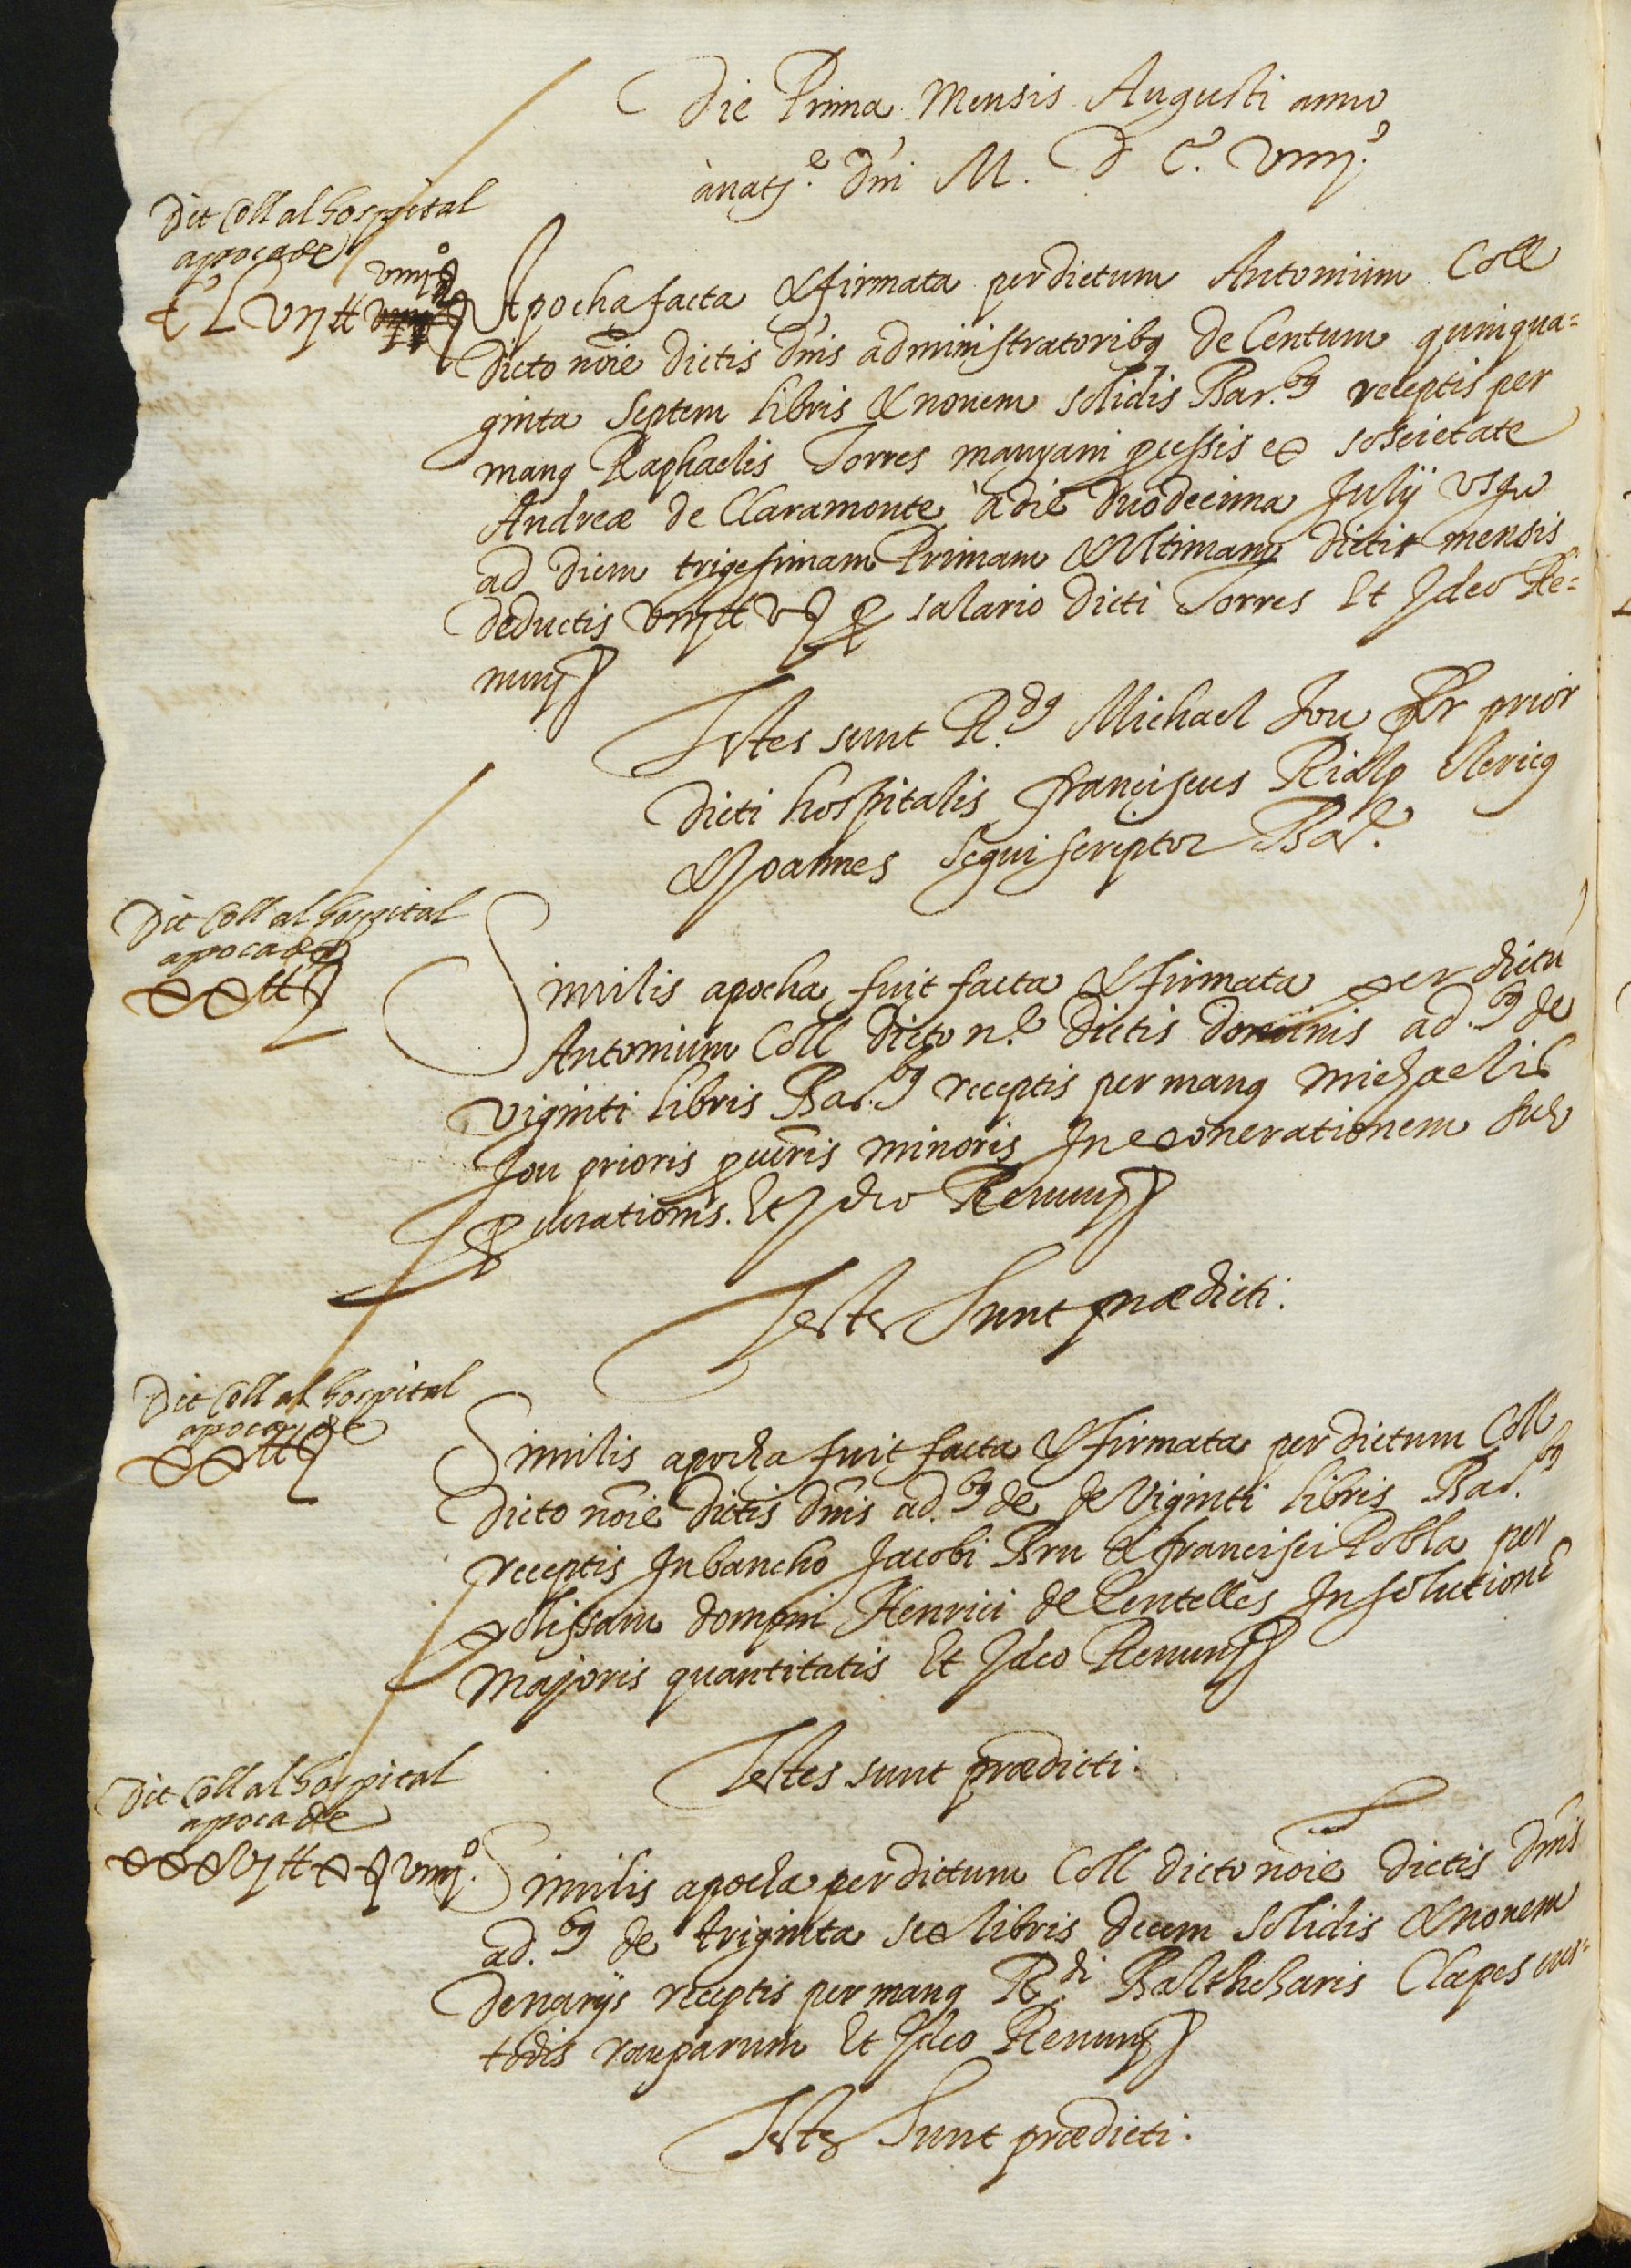 Die Prima Mensis Augusti anno
ànatj.e Dñi M. D C. Viiij.o
Dit Coll al hospital
apoca de
C L Vij tt viiij s
Apocha facta & firmata per dictum Antonium Coll
dicto nõie dictis dñis administratoribq de Centum quinqua=
ginta Septem libris & nouem solidis Bar.bq receptis per
manq Raphaelis Torres manyani ex societate
Andreæ de Claramonte à die duodecima Julij usqu
ad diem trigesimam Primam & Ultimam dicti mensis
deductis Viij tt V s p salario dicti Torres Et Ideo Re=
nunj
Testes sunt R.dq Michael Jou pr prior
dicti hospitalis franciscus Rialp clericq
& Joannes Segui scriptor Bar.e
Dit Coll al hospital
apoca de
xx tt s
Similis apocha fuit facta & firmata per dictũ
Antonium Coll dicto n.e dictis dominis ad.bq de
viginti libris Bar.bq receptis per manq michaelis
Jou prioris minoris In exonerationem sue
procurationis. Et Ideo Renunj
Testes Sunt prædicti.
Dit Coll al hospital
apoca de
xx tt s
Similis apocha fuit facta & firmata per dictum Coll
dicto nõie dictis dñis ad.bq de de Viginti libris Bar.bq
receptis In bancho Jacobi Bru & francisci Pobla per
polissam dompni Henrici de Centelles In solutionẽ
majoris quantitatis Et Ideo Renunj
Testes sunt prædicti.
Dit Coll al hospital
apoca de
xxxvj tt x s viiij.o
Similis apocha per dictum Coll dicto nõie dictis dñis
ad.bq de triginta sex libris decem solidis & nonem
denarijs receptis per manq R.di Balthesaris Clapes cus=
todis rauparum Et Ideo Renunj
Testes Sunt prædicti.